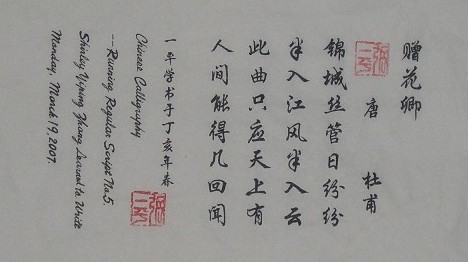 赠花卿
唐 杜甫
锦城丝管日纷纷
半入江风半入云
此曲只应天上有
人间能得几回闻
一平学书于丁亥年春
Chinese Calligraphy
--Running Regular Script No.5.
Shirley Yiping Zhang Learned to Write
Monday, March 19, 2007.